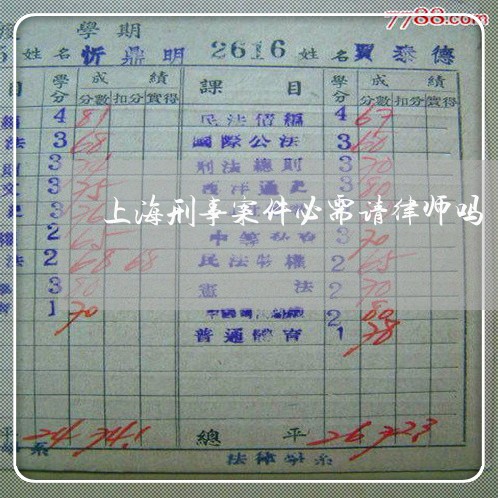 7788.com
度 學期
5 姓名 忻鼎明 2616 姓名 賈泰德
目 學分 成績 課目 學分 成績
分數 扣分 實得 分數 扣分 實得
4 81 民法債編 4 67
法 3 68 國際公法 3 60
3 刑法總則 3 70
文 3 75 西洋通史 3 80
3 76
上海刑事案件必需请律师吗
2 65 3 70
法 2 68 68 民法物權 2 65
3 80 憲法 2 70
1 70 2 80
普通體育 1 78
平 24 74.1 總平 26 72.3
系 法律學系